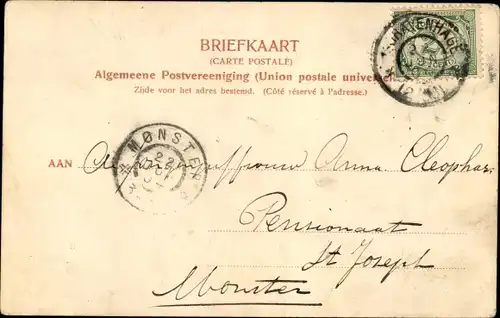 BRIEFKAART
(CARTE POSTALE)
Algemeene Postvereeniging (Union postale univers
Zijde voor het adres bestemd. (Côté réservé à l'adresse.)
'S GRAVENHAGE
MONSTER
AAN Anna Cleophas
Pensionaat
St Joseph
Monster